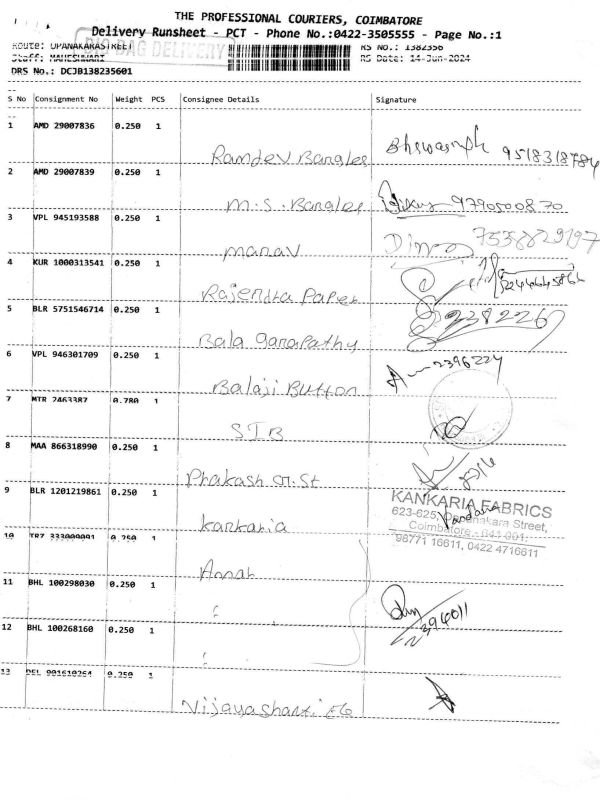 THE PROFESSIONAL COURIERS, COIMBATORE
Delivery Runsheet - PCT - Phone No.:0422-3505555 - Page No.:1
Route: OPANAKARASTREET RS No.: 1382356
BIG BAG DELIVERY
Staff: MAHESHWARI RS Date: 14-Jun-2024
DRS No.: DCJB138235601
S No Consignment No Weight PCS Consignee Details Signature
1 AMD 29007836 0.250 1
Ramdev Bangles Bhawasingh 9518318784
2 AMD 29007839 0.250 1
M.S. Bangles 9790500870
3 VPL 945193588 0.250 1
manav 7558829197
4 KUR 1000313541 0.250 1
Rajendra Paper
5 BLR 5751546714 0.250 1
Bala Ganapathy 2382267
6 VPL 946301709 0.250 1
Balaji Button 2396224
7 MTR 2463387 0.780 1
STB
8 MAA 866318990 0.250 1
Phakash
9 BLR 1201219861 0.250 1
Kankaria
KANKARIA FABRICS
623-625, Oppanakara Street,
Coimbatore - 641 001.
98771 16611, 0422 4716611
10 TRZ 333009091 0.250 1
Annah
11 BHL 100298030 0.250 1
394011
12 BHL 100268160 0.250 1
13 DEL 901610264 0.250 1
Vijayashanti